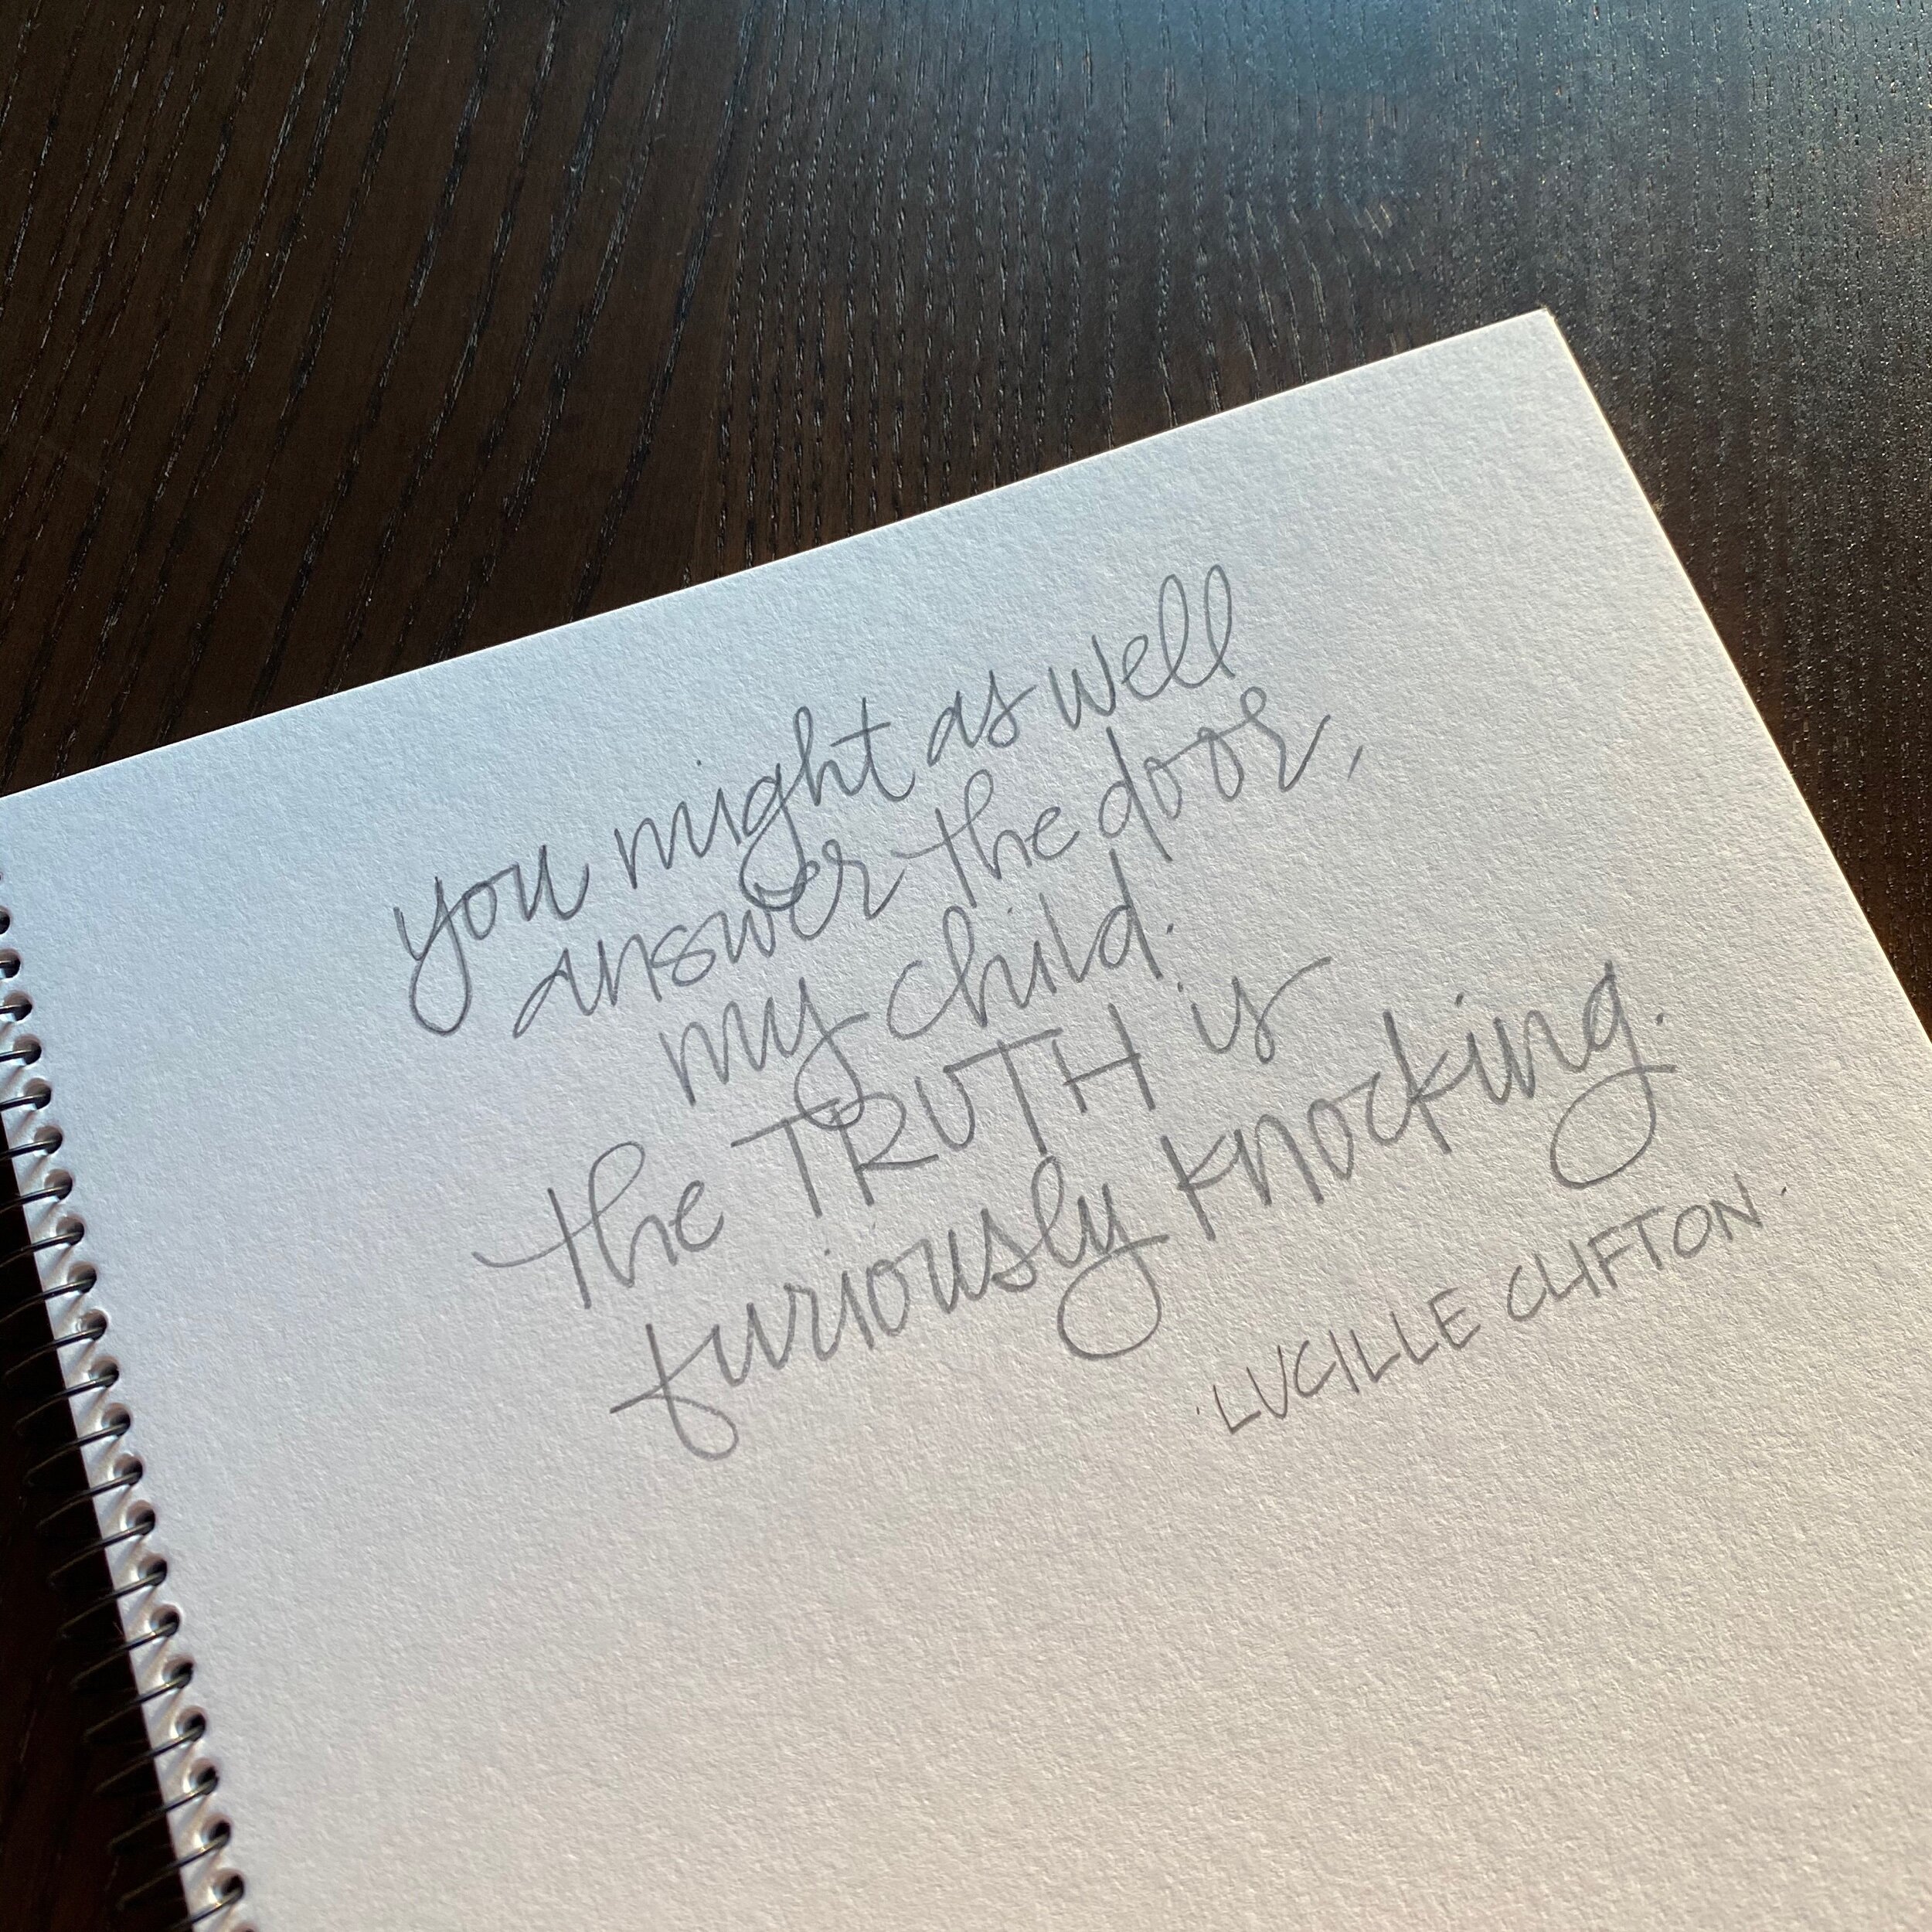 you might as well
answer the door,
my child.
the TRUTH is
furiously knocking.
·LUCILLE CLIFTON·